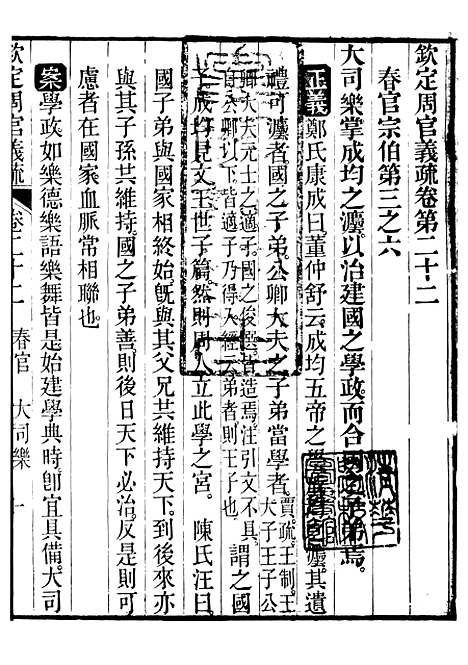 欽定周官義疏卷第二十二
春官宗伯第三之六
大司樂掌成均之灋以治建國之學政而合國之子弟焉
正義鄭氏康成曰董仲舒云成均五帝之學成均之灋其遺
禮可灋者國之子弟公卿大夫之子弟當學者賈疏王制王大子王子公
卿大夫元士之適子國之俊選皆造焉注引文不具
自公卿以下皆適子乃得入經云弟者則王子也謂之國
子成均見文王世子篇然則周人立此學之宮陳氏汪曰
國子弟與國家相終始旣與其父兄共維持天下到後來亦
與其子孫共維持國之子弟善則後日天下必治反是則可
慮者在國家血脈常相聯也
案學政如樂德樂語樂舞皆是始建學典時卽宜具備大司
欽定周官義疏 卷二十二 春官 大司樂 一